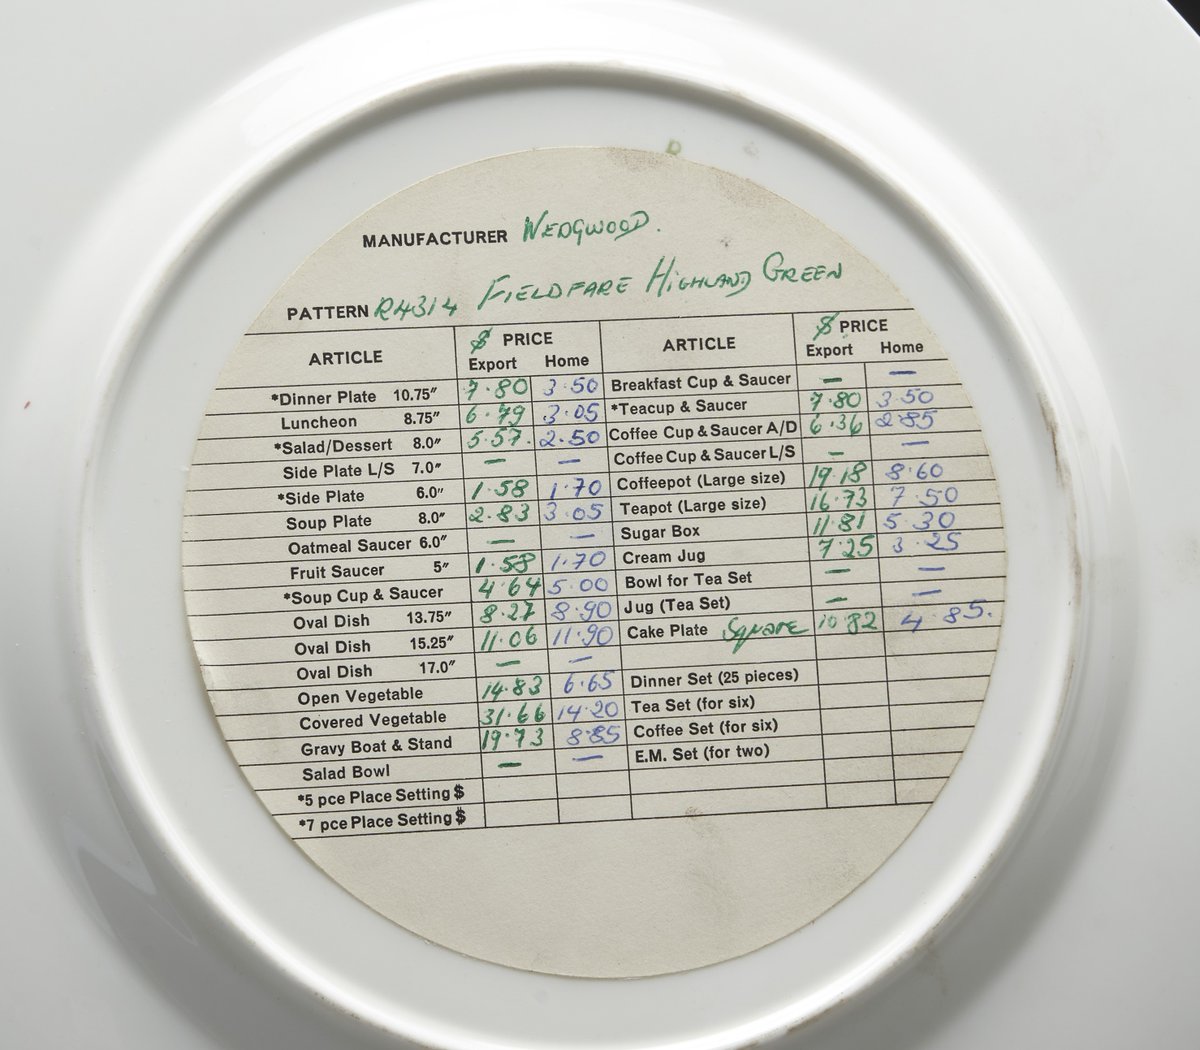 MANUFACTURER WEDGWOOD.
PATTERN R4314 FIELDFARE HIGHLAND GREEN
ARTICLE $ PRICE ARTICLE $ PRICE
Export Home Export Home
*Dinner Plate 10.75" 7.80 3.50 Breakfast Cup & Saucer — —
Luncheon 8.75" 6.79 3.05 *Teacup & Saucer 7.80 3.50
*Salad/Dessert 8.0" 5.57. 2.50 Coffee Cup & Saucer A/D 6.36 2.85
Side Plate L/S 7.0" — — Coffee Cup & Saucer L/S — —
*Side Plate 6.0" 1.58 1.70 Coffeepot (Large size) 19.18 8.60
Soup Plate 8.0" 2.83 3.05 Teapot (Large size) 16.73 7.50
Oatmeal Saucer 6.0" — — Sugar Box 11.81 5.30
Fruit Saucer 5" 1.58 1.70 Cream Jug 7.25 3.25
*Soup Cup & Saucer 4.64 5.00 Bowl for Tea Set — —
Oval Dish 13.75" 8.27 8.90 Jug (Tea Set) — —
Oval Dish 15.25" 11.06 11.90 Cake Plate Square 10.82 4.85.
Oval Dish 17.0" — —
Open Vegetable 14.83 6.65 Dinner Set (25 pieces)
Covered Vegetable 31.66 14.20 Tea Set (for six)
Gravy Boat & Stand 19.73 8.85 Coffee Set (for six)
Salad Bowl — — E.M. Set (for two)
*5 pce Place Setting $
*7 pce Place Setting $